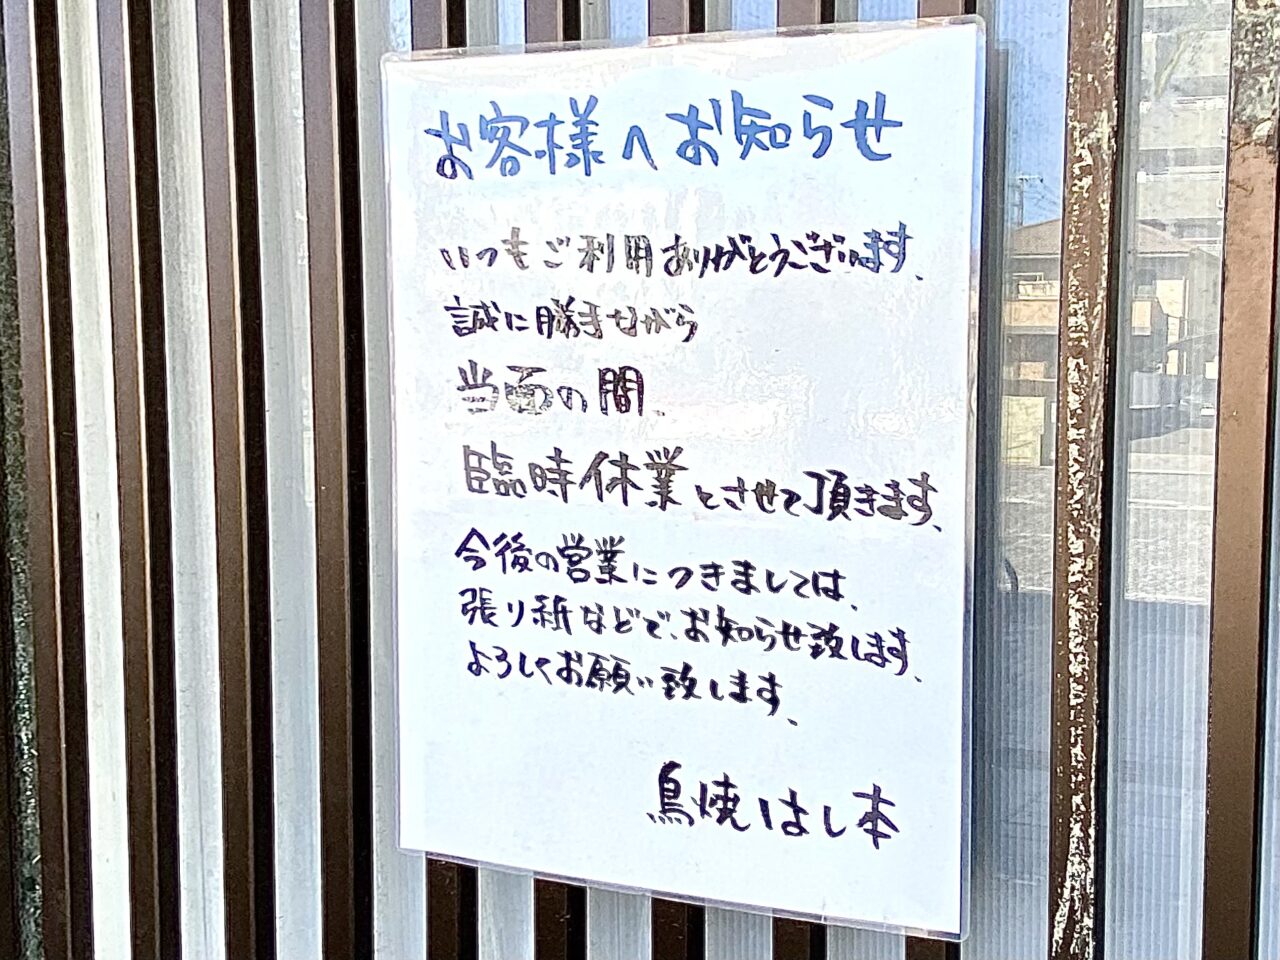 お客様へお知らせ
いつもご利用ありがとうございます、
誠に勝手せがら
当面の間、
臨時休業とさせて頂きます、
今後の営業につきましては、
張り紙などで、お知らせ致します、
よろしくお願い致します、
鳥焼はし本